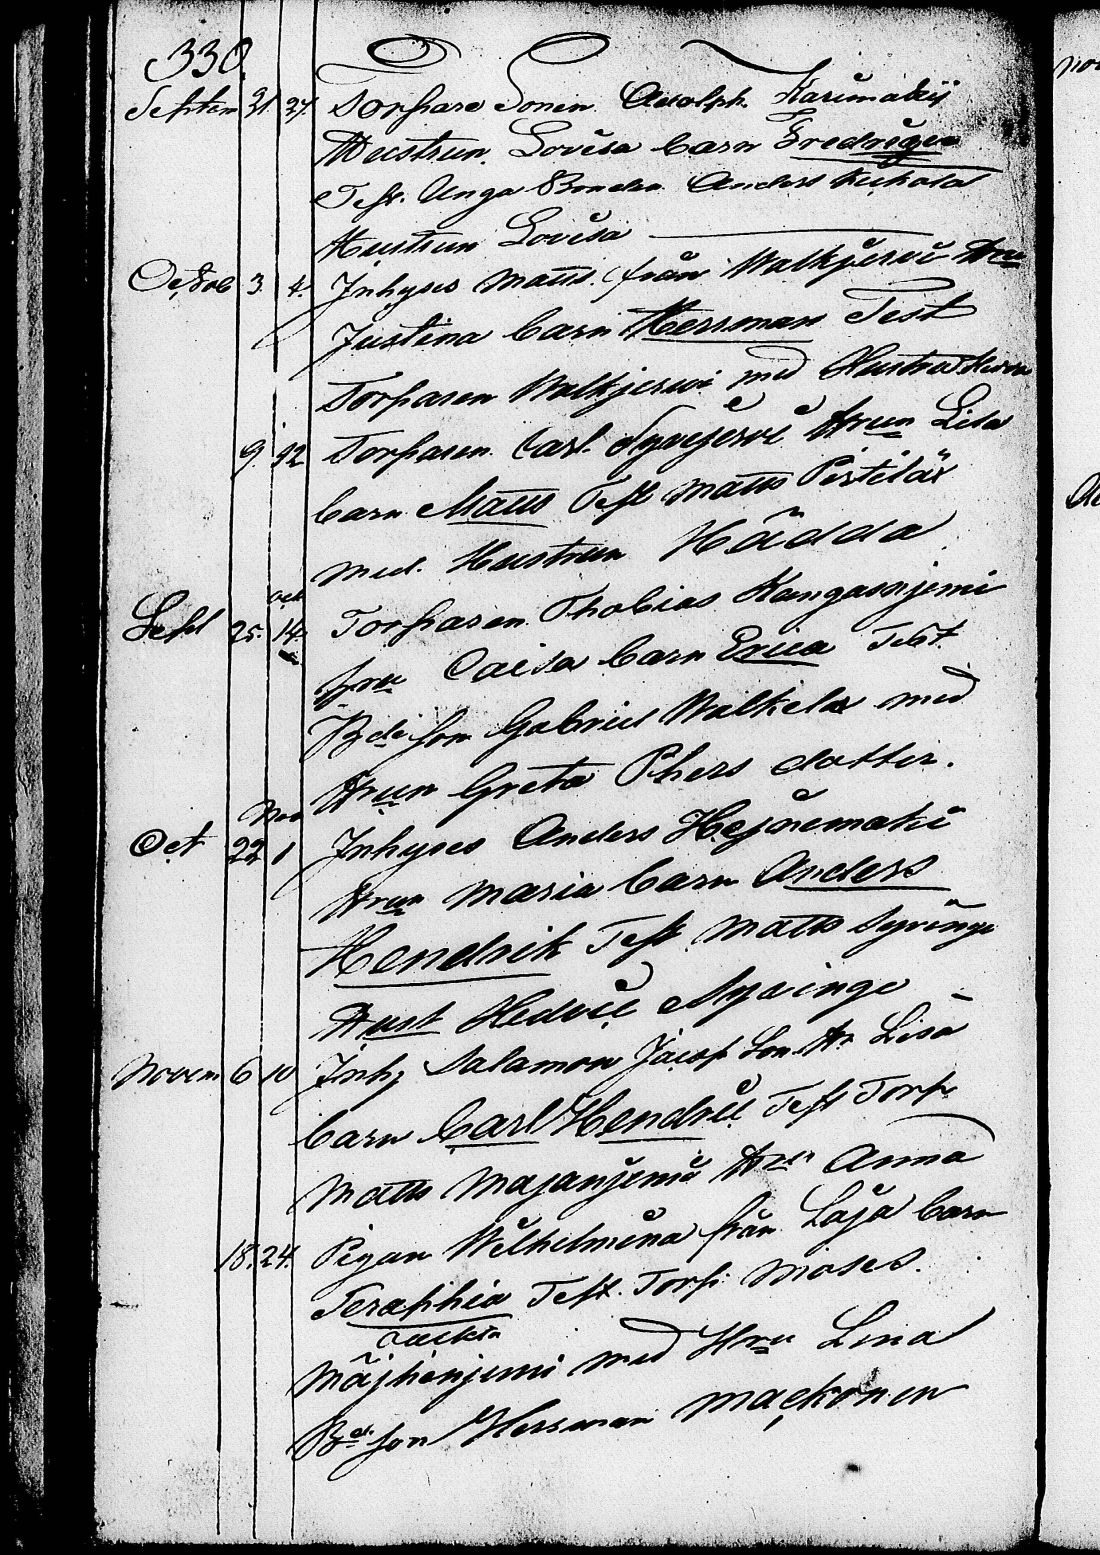 330.
Septem 21. 27. Torpare Sonen Adolph Karimakij
Hustrun Lovisa barn Fredrigen
Test. Unga Bonden Anders Kuhala
Hustrun Lovisa
Octob 3. 4. Inhyses Matts från Walkjervi Hru
Justina barn Herrman Test
Torparen Walkjerwi med Hustra
9. 12 Torparen Carl Syvejervi Hrun Lisa
barn Matts Test Matts Pertelär
med Hustrun Hädda
Oct
Sept 25. 14. Torparen Thobias Kangasnjemi
hru Caisa barn Erica Test
Bde son Gabriel Walkela med
Hrun Greta Phers dotter.
Nov
Oct 22 1 Inhyses Anders Hejnemaki
Hrun Maria barn Anders
Hendrik Test Matts Syringe
Hust Hedvig
Novem 6 10 Inhy Salamon Jacop Son Hr Lisa
barn Carl Hendric Test Torp
Matts Majanjemi Hrun Anna
18. 24. Pigan Wilhelmina från Laja barn
Seraphia Test. Torp. Moses.
oäckta
Mäjhänjemi med Hru Lena
Bd son Herman Mackonen